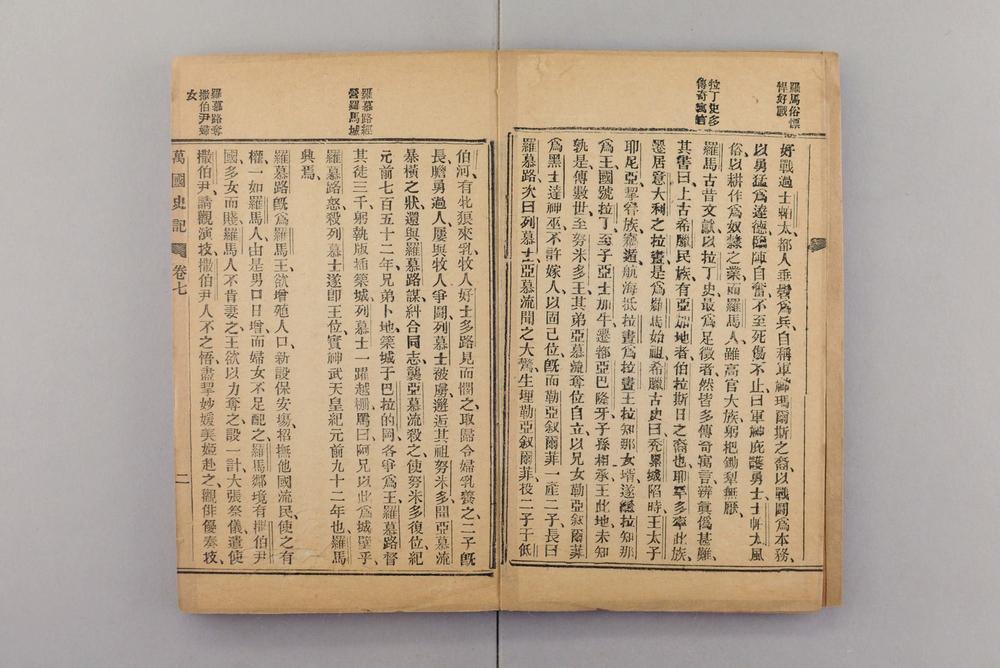 羅馬俗慓
悍好戰
好戰過士帕太都人垂髫爲兵、自稱軍神瑪爾斯之裔、以戰鬪爲本務、
以勇猛爲達德、臨陣自奮、不至死傷不止、曰軍神庇護勇士、士帕太風
俗、以耕作爲奴隸之業、而羅馬人雖高官大族、躬把鋤犁無厭、
拉丁史多
傳奇寓言
羅馬古昔文獻、以拉丁史最爲足徵者、然皆多傳奇寓言、辨眞僞甚難、
其書曰、上古希臘民族、有亞加地者、伯拉斯日之裔也、多率此族、
遷居意大利之拉晝、是爲羅馬始祖、希臘古史曰、禿累城陷時、王太子
耶尼亞挈眷族蕩遁、航海抵拉晝、爲拉晝王拉知那女壻、遂繼拉知那
爲王、國號拉丁、至子亞士加牛、遷都亞巴隆牙、子孫相承王此地、未知
孰是、傳數世至努米多王、其弟亞慕流奪位自立、以兄女勒亞叙爾菲
爲黑士達神巫、不許嫁人、以固己位、旣而勒亞叙爾菲一產二子、長曰
羅慕路、次曰列慕士、亞慕流聞之大驚、生埋勒亞叙爾菲、投二子于低
伯河、有牝狼來乳、牧人好士多路見而憫之、取歸令婦乳養之、二子旣
長、膽勇過人、屢與牧人爭鬪、列慕士被虜、邂逅其祖努米多、聞亞慕流
暴橫之狀、還與羅慕路謀、糾合同志、襲亞慕流殺之、使努米多復位、紀
羅慕路經
營羅馬城
元前七百五十二年、兄弟卜地築城于巴拉的岡、各爭爲王、羅慕路督
其徒三千、躬執版插築城、列慕士一躍越柵、罵曰、阿兄以此爲城壁乎、
羅慕路怒殺列慕士、遂卽王位、實神武天皇紀元前九十二年也、羅馬
興焉、
羅慕路旣爲羅馬王、欲增殖人口、新設保安場、招撫他國流民、使之有
權一如羅馬人、由是男口日增、而婦女不足配之、羅馬鄰境有撒伯尹
羅慕路奪
撒伯尹婦
女
國多女、而賤羅馬人不肯妻之、王欲以力奪之、設一計、大張祭儀、遣使
撒伯尹、請觀演技、撒伯尹人不之悟、盡挈妙媛美姬赴之、觀俳優奏技、
萬國史記 卷七 二